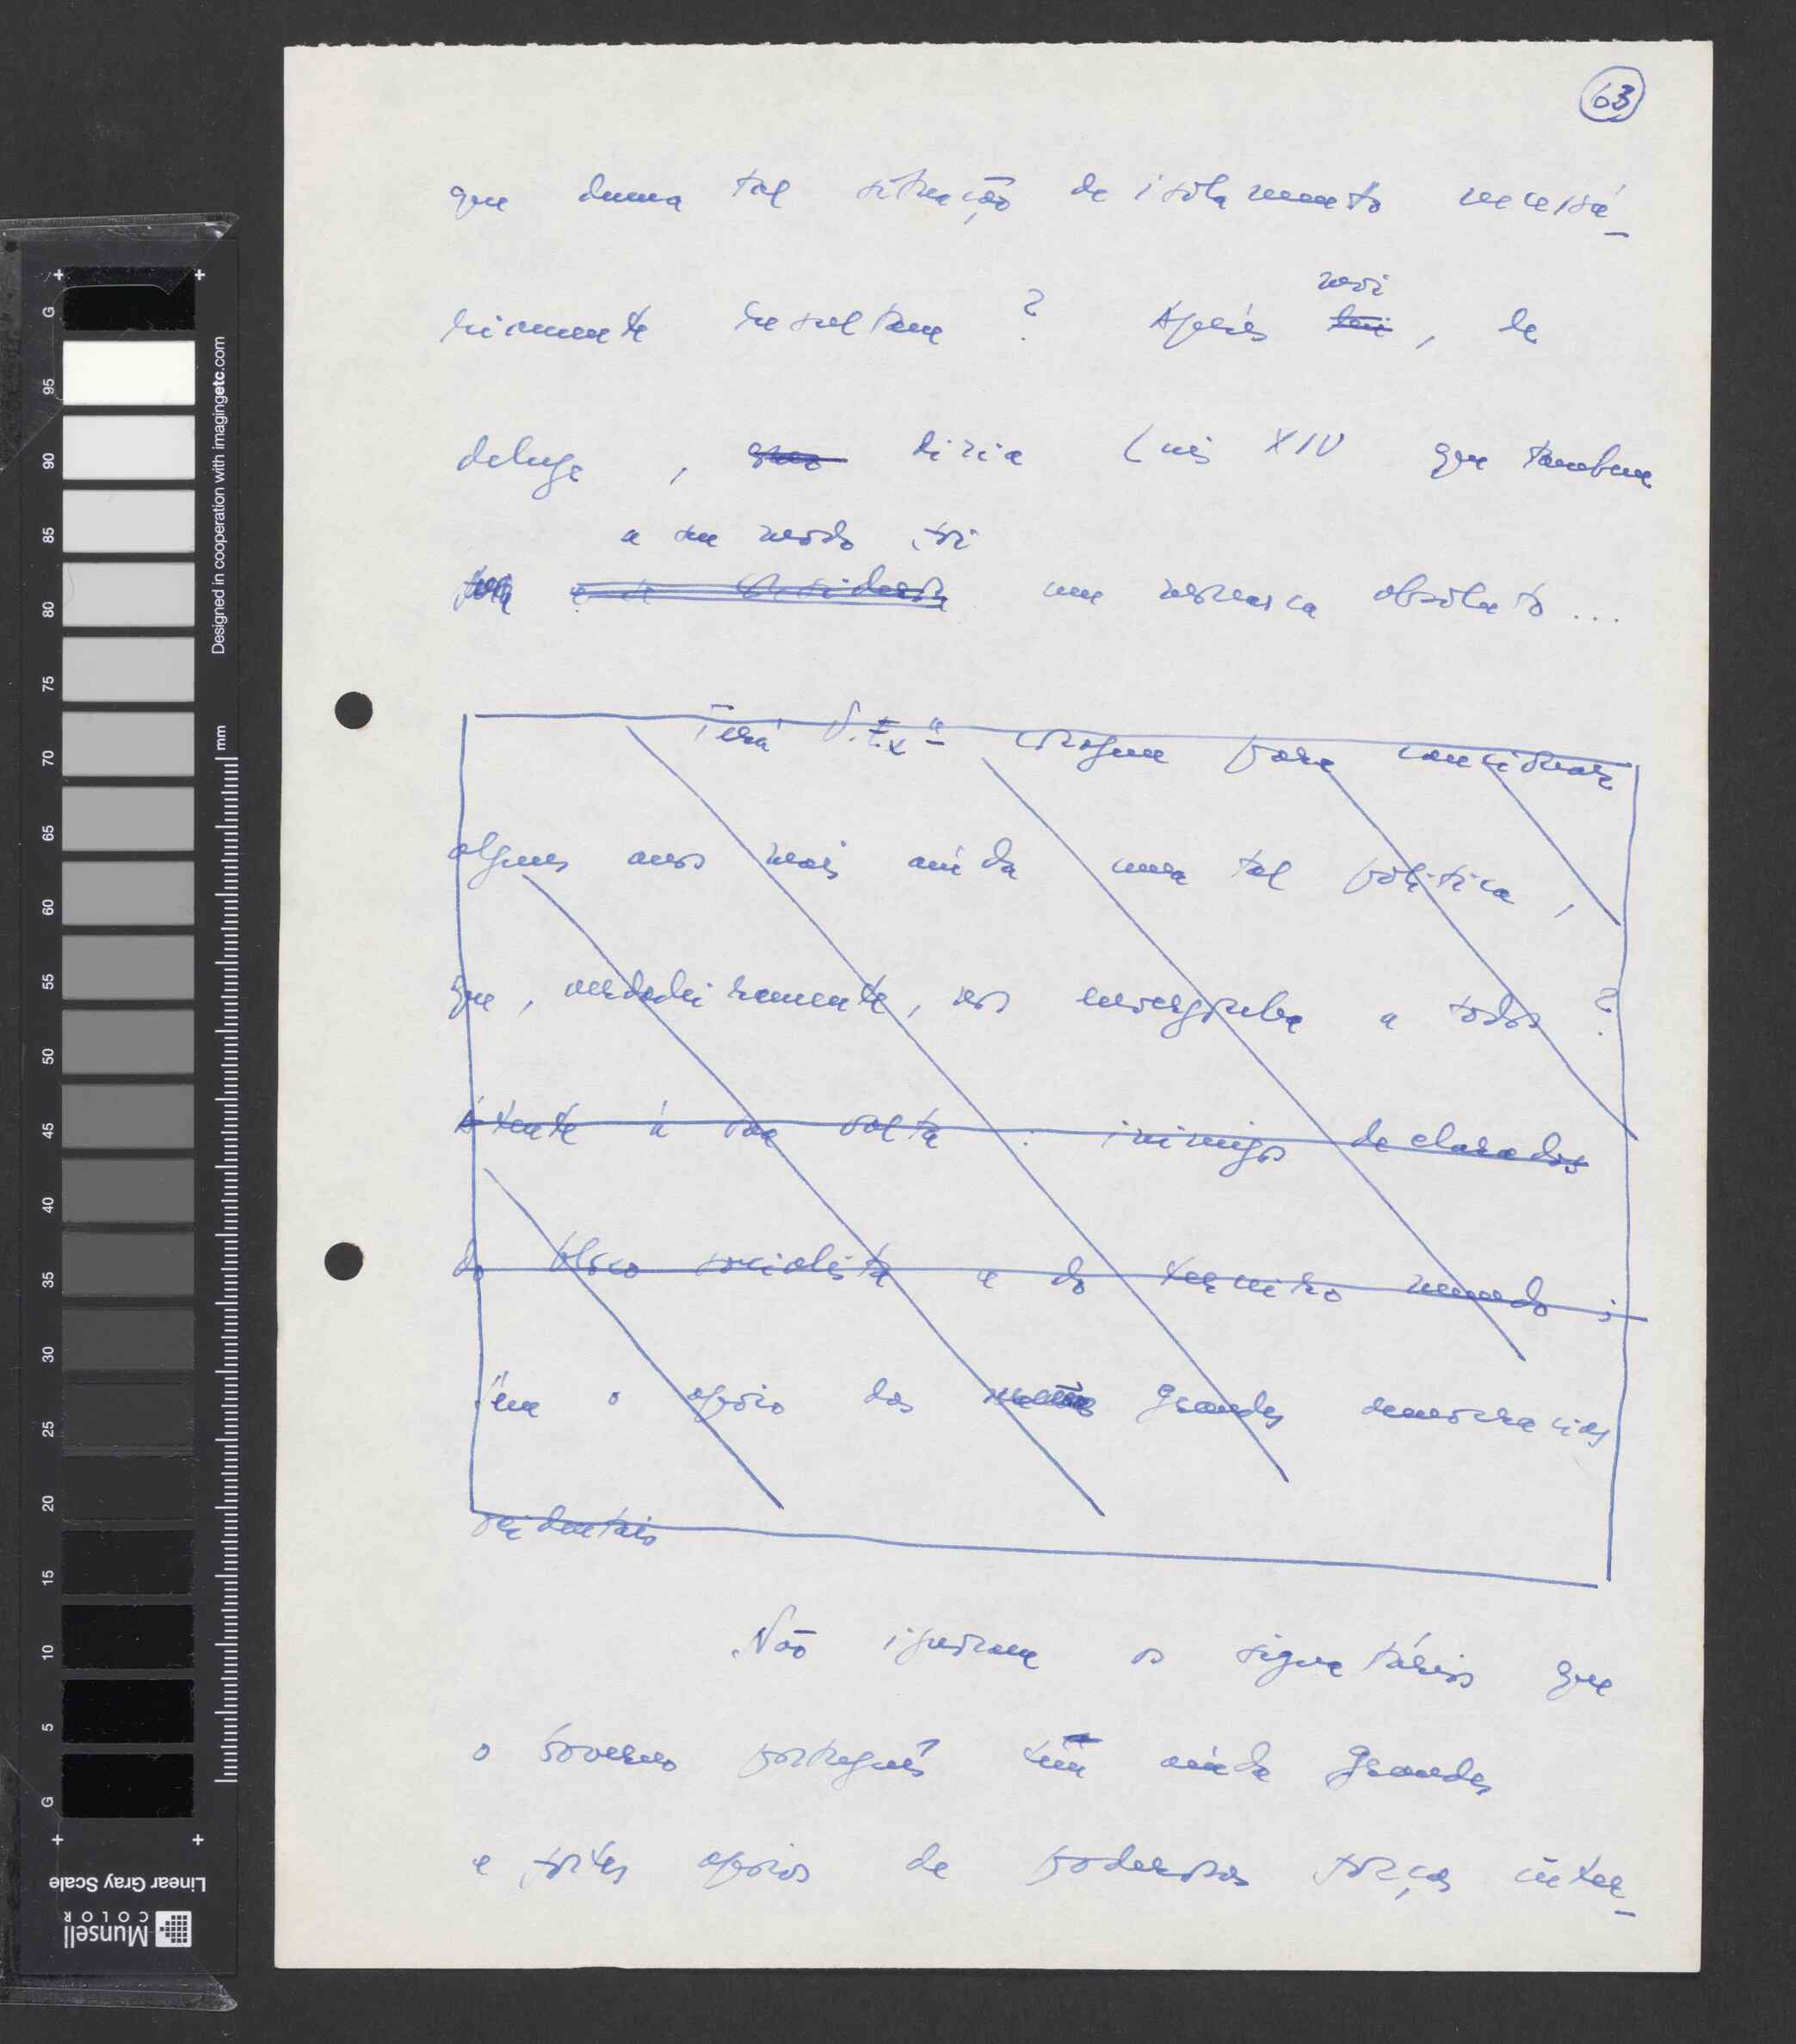 63
que duma tal situação de isolamento necessá-
moi
riamente resultam ? Après toi, le
deluge , como diria Luís XIV que também
a seu modo foi
um monarca absoluto ...
Terá V. Exª coragem para continuar
alguns anos mais ainda uma tal política ,
que , verdadeiramente, nos envergonha a todos ?
Atente à sua volta : inimigos declarados
do bloco socialista e do terceiro mundo ;
sem o apoio das grandes democracias
ocidentais
Não ignoram os signatários que
o Governo português tem ainda grandes
e fortes apoios de poderosas forças inter-
Designed in cooperation with imagingetc.com
mm
G 95 90 85 80 75 70 65 60 55 50 45 40 35 30 25 20 15 10 5 G
Linear Gray Scale
Munsell
COLOR